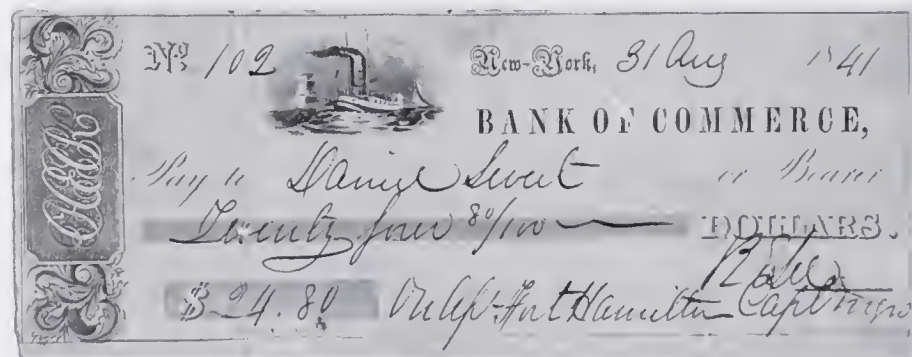 CHECK
No 102 New-York, 31 Aug 1841
BANK OF COMMERCE,
Pay to Daniel Sweet or Bearer
Twenty four 80/100 DOLLARS.
R E Lee
$24.80 On a/c Fort Hamilton Capt Engrs